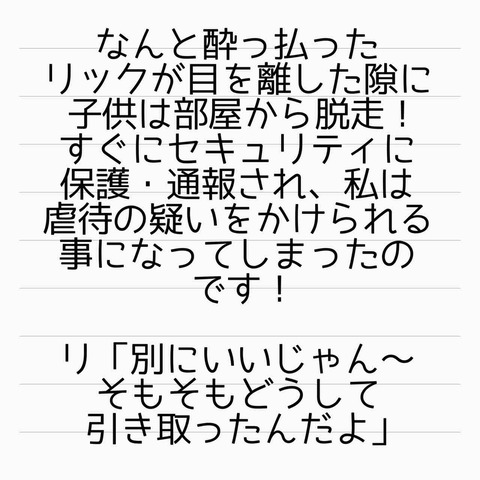 なんと酔っ払った
リックが目を離した隙に
子供は部屋から脱走！
すぐにセキュリティに
保護・通報され、私は
虐待の疑いをかけられる
事になってしまったの
です！
リ「別にいいじゃん〜
そもそもどうして
引き取ったんだよ」